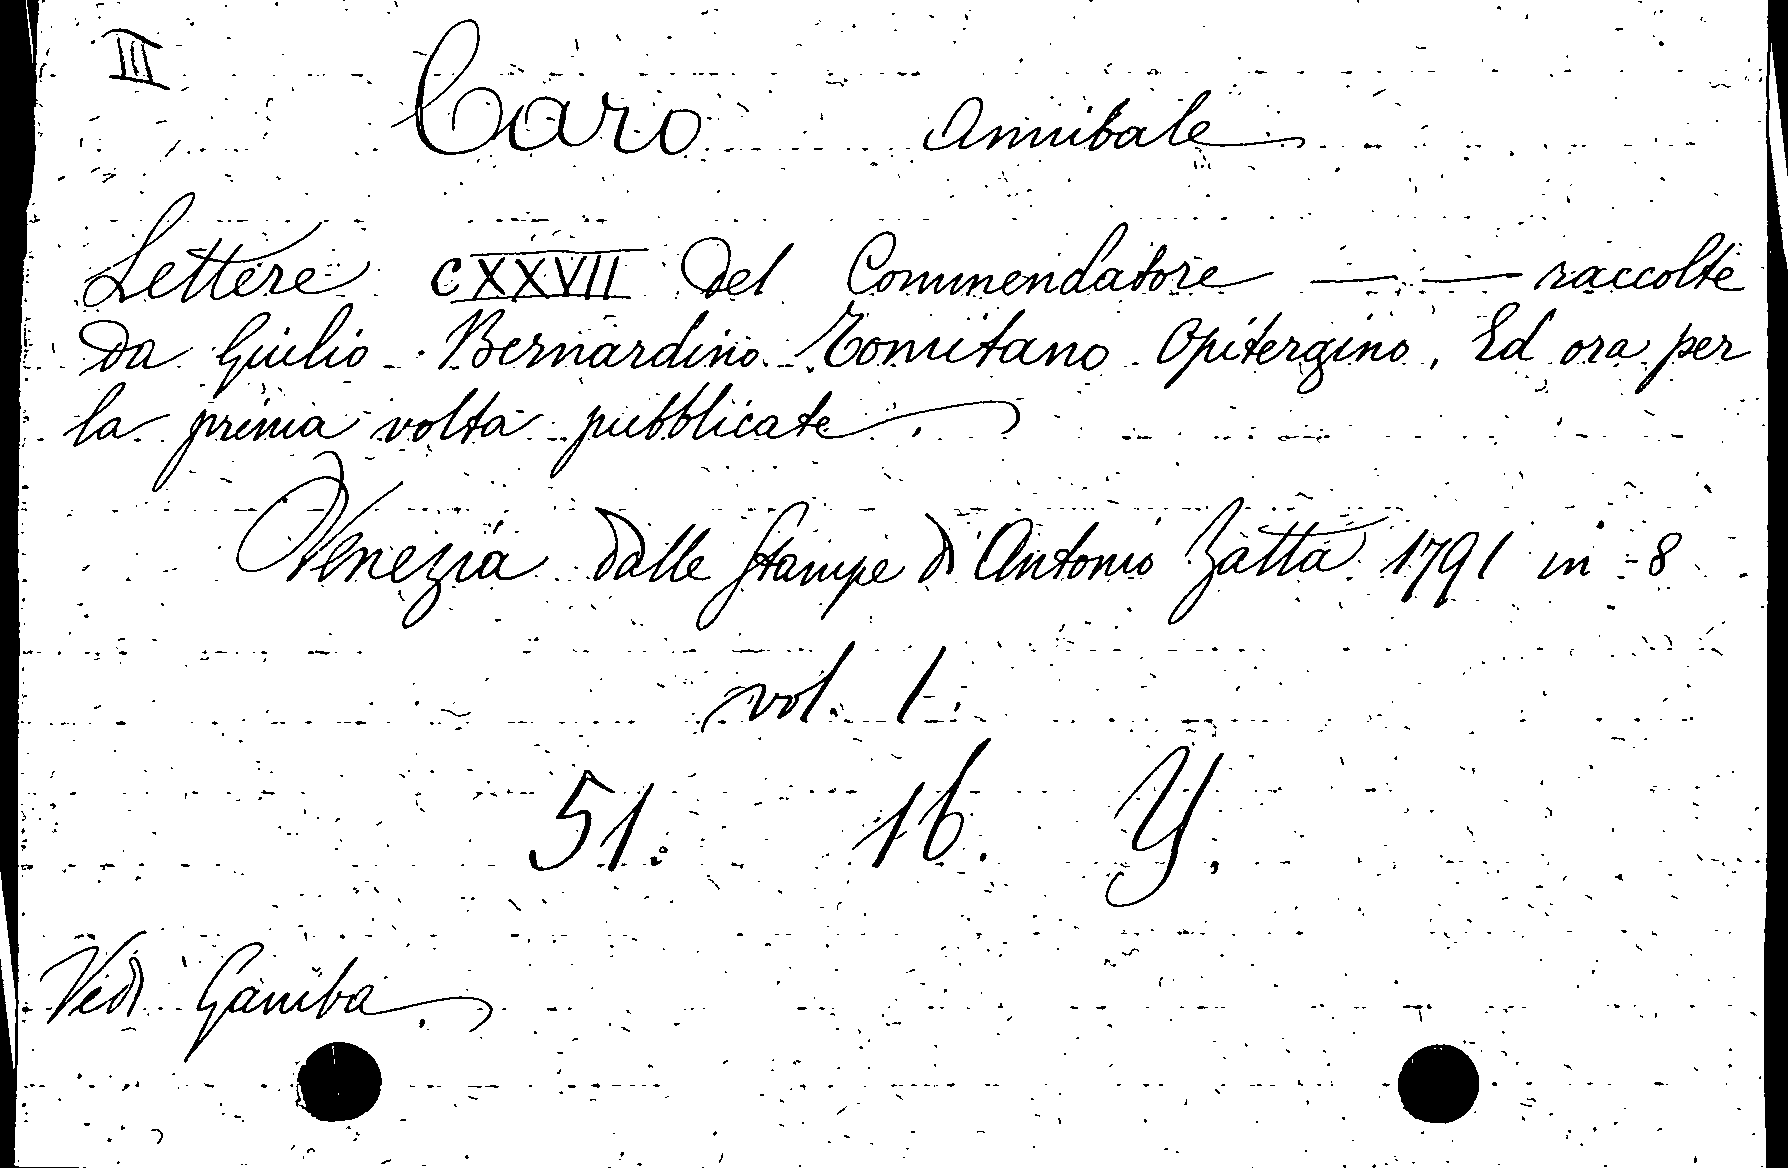 III
Caro Annibale
Lettere CXXVII del Commendatore — — raccolte
da Giulio Bernardino Tomitano Opitergino. Ed ora per
la prima volta pubblicate.
Venezia dalle stampe di Antonio Zatta 1791 in-8
vol. 1.
51. 16. Y.
Vedi Gamba.